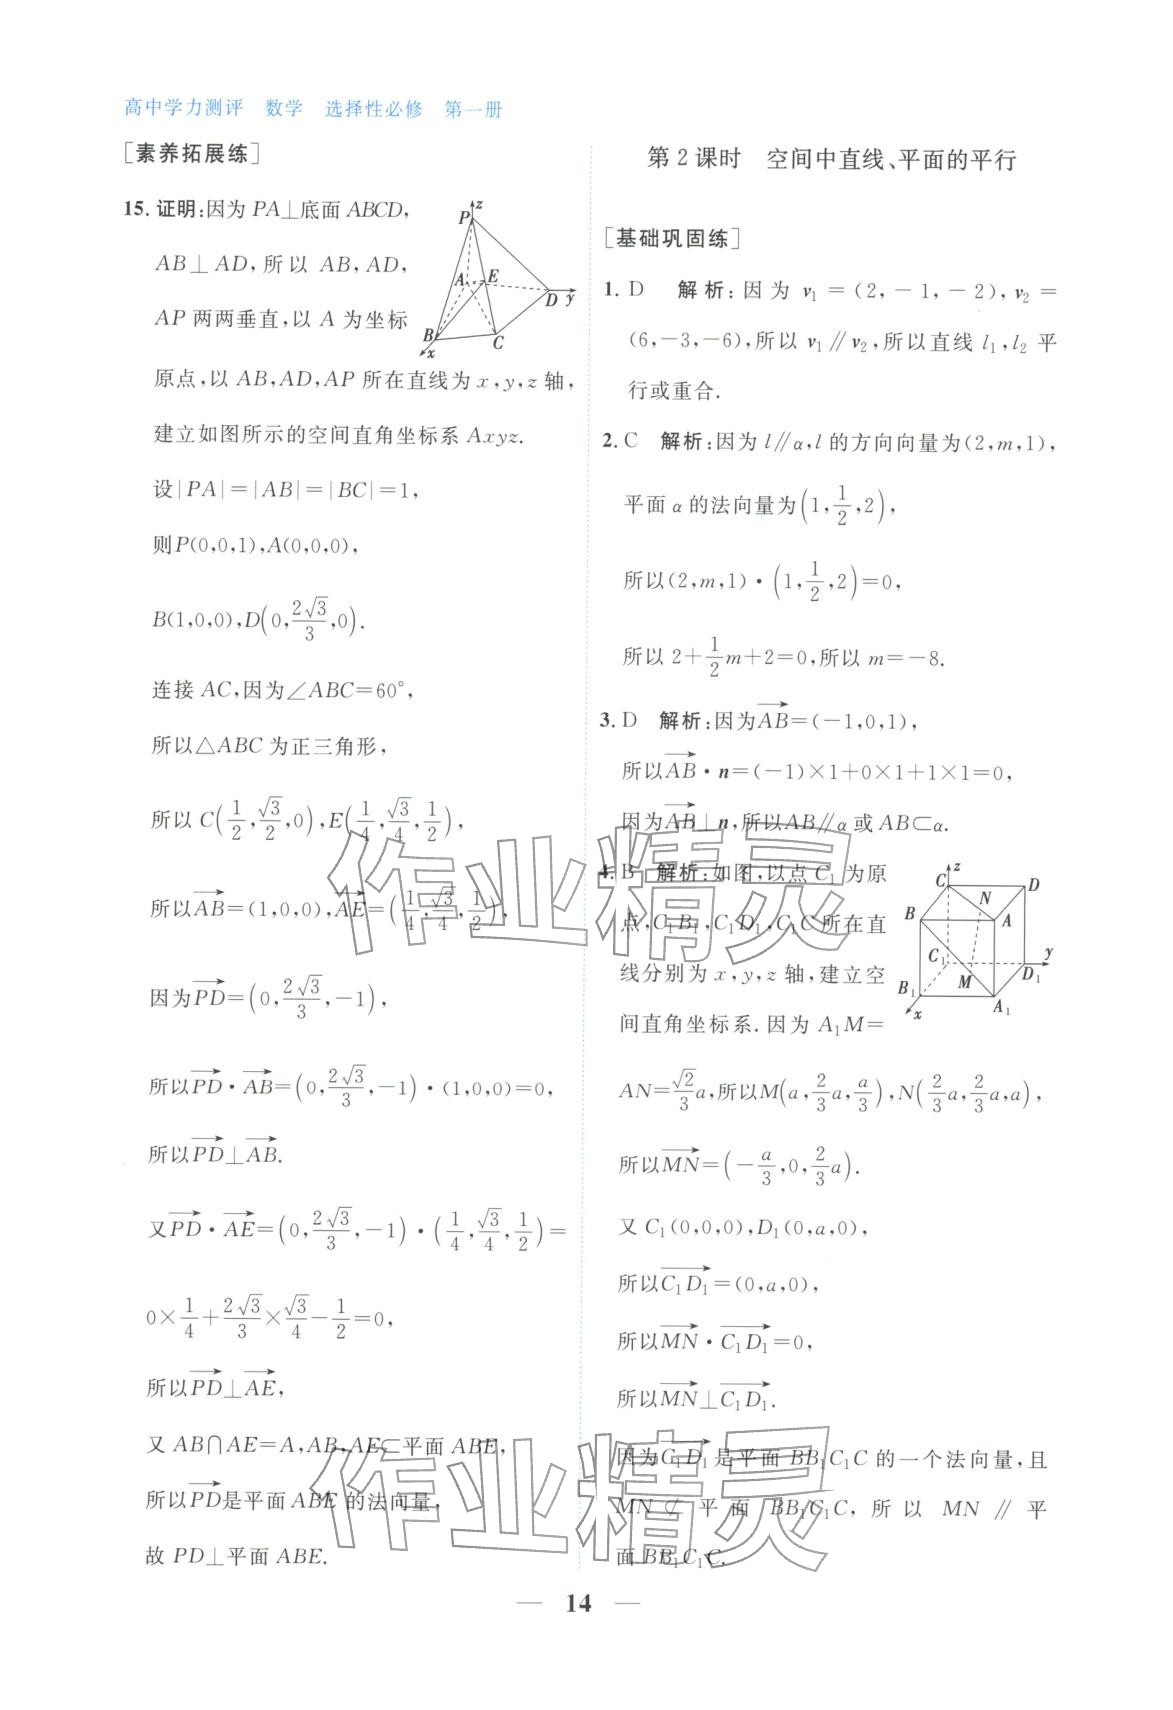 高中学力测评 数学 选择性必修 第一册
[素养拓展练]
15. 证明:因为 PA⊥底面 ABCD,
AB⊥AD,所以 AB,AD,
AP 两两垂直,以 A 为坐标
原点,以 AB,AD,AP 所在直线为 x,y,z 轴,
建立如图所示的空间直角坐标系 Axyz.
设|PA|=|AB|=|BC|=1,
则P(0,0,1),A(0,0,0),
B(1,0,0),D(0,2√3/3,0).
连接 AC,因为∠ABC=60°,
所以△ABC 为正三角形,
所以 C(1/2,√3/2,0),E(1/4,√3/4,1/2),
所以→AB=(1,0,0),→AE=(1/4,√3/4,1/2),
因为→PD=(0,2√3/3,-1),
所以→PD·→AB=(0,2√3/3,-1)·(1,0,0)=0,
所以→PD⊥→AB.
又→PD·→AE=(0,2√3/3,-1)·(1/4,√3/4,1/2)=
0×1/4+2√3/3×√3/4-1/2=0,
所以→PD⊥→AE,
又 AB∩AE=A,AB,AE⊂平面 ABE,
所以→PD是平面 ABE 的法向量,
故 PD⊥平面 ABE.
z
P
A
E
D
y
B
C
x
第 2 课时 空间中直线、平面的平行
[基础巩固练]
1. D 解析:因为 v₁=(2,-1,-2),v₂=
(6,-3,-6),所以 v₁∥v₂,所以直线 l₁,l₂ 平
行或重合.
2. C 解析:因为 l∥α,l 的方向向量为(2,m,1),
平面 α 的法向量为(1,1/2,2),
所以(2,m,1)·(1,1/2,2)=0,
所以 2+1/2m+2=0,所以 m=-8.
3. D 解析:因为→AB=(-1,0,1),
所以→AB·n=(-1)×1+0×1+1×1=0,
因为→AB⊥n,所以AB∥α 或 AB⊂α.
4. B 解析:如图,以点 C₁ 为原
点,C₁B₁,C₁D₁,C₁C 所在直
线分别为 x,y,z 轴,建立空
间直角坐标系.因为 A₁M=
AN=√2/3a,所以M(a,2/3a,a/3),N(2/3a,2/3a,a),
所以→MN=(-a/3,0,2/3a).
又 C₁(0,0,0),D₁(0,a,0),
所以→C₁D₁=(0,a,0),
所以→MN·→C₁D₁=0,
所以→MN⊥→C₁D₁.
因为→C₁D₁是平面 BB₁C₁C 的一个法向量,且
MN⊄平面 BB₁C₁C,所以 MN∥平
面 BB₁C₁C.
z
C
D
N
B
A
C₁
y
M
D₁
B₁
x
A₁
作业精灵
作业精灵
14